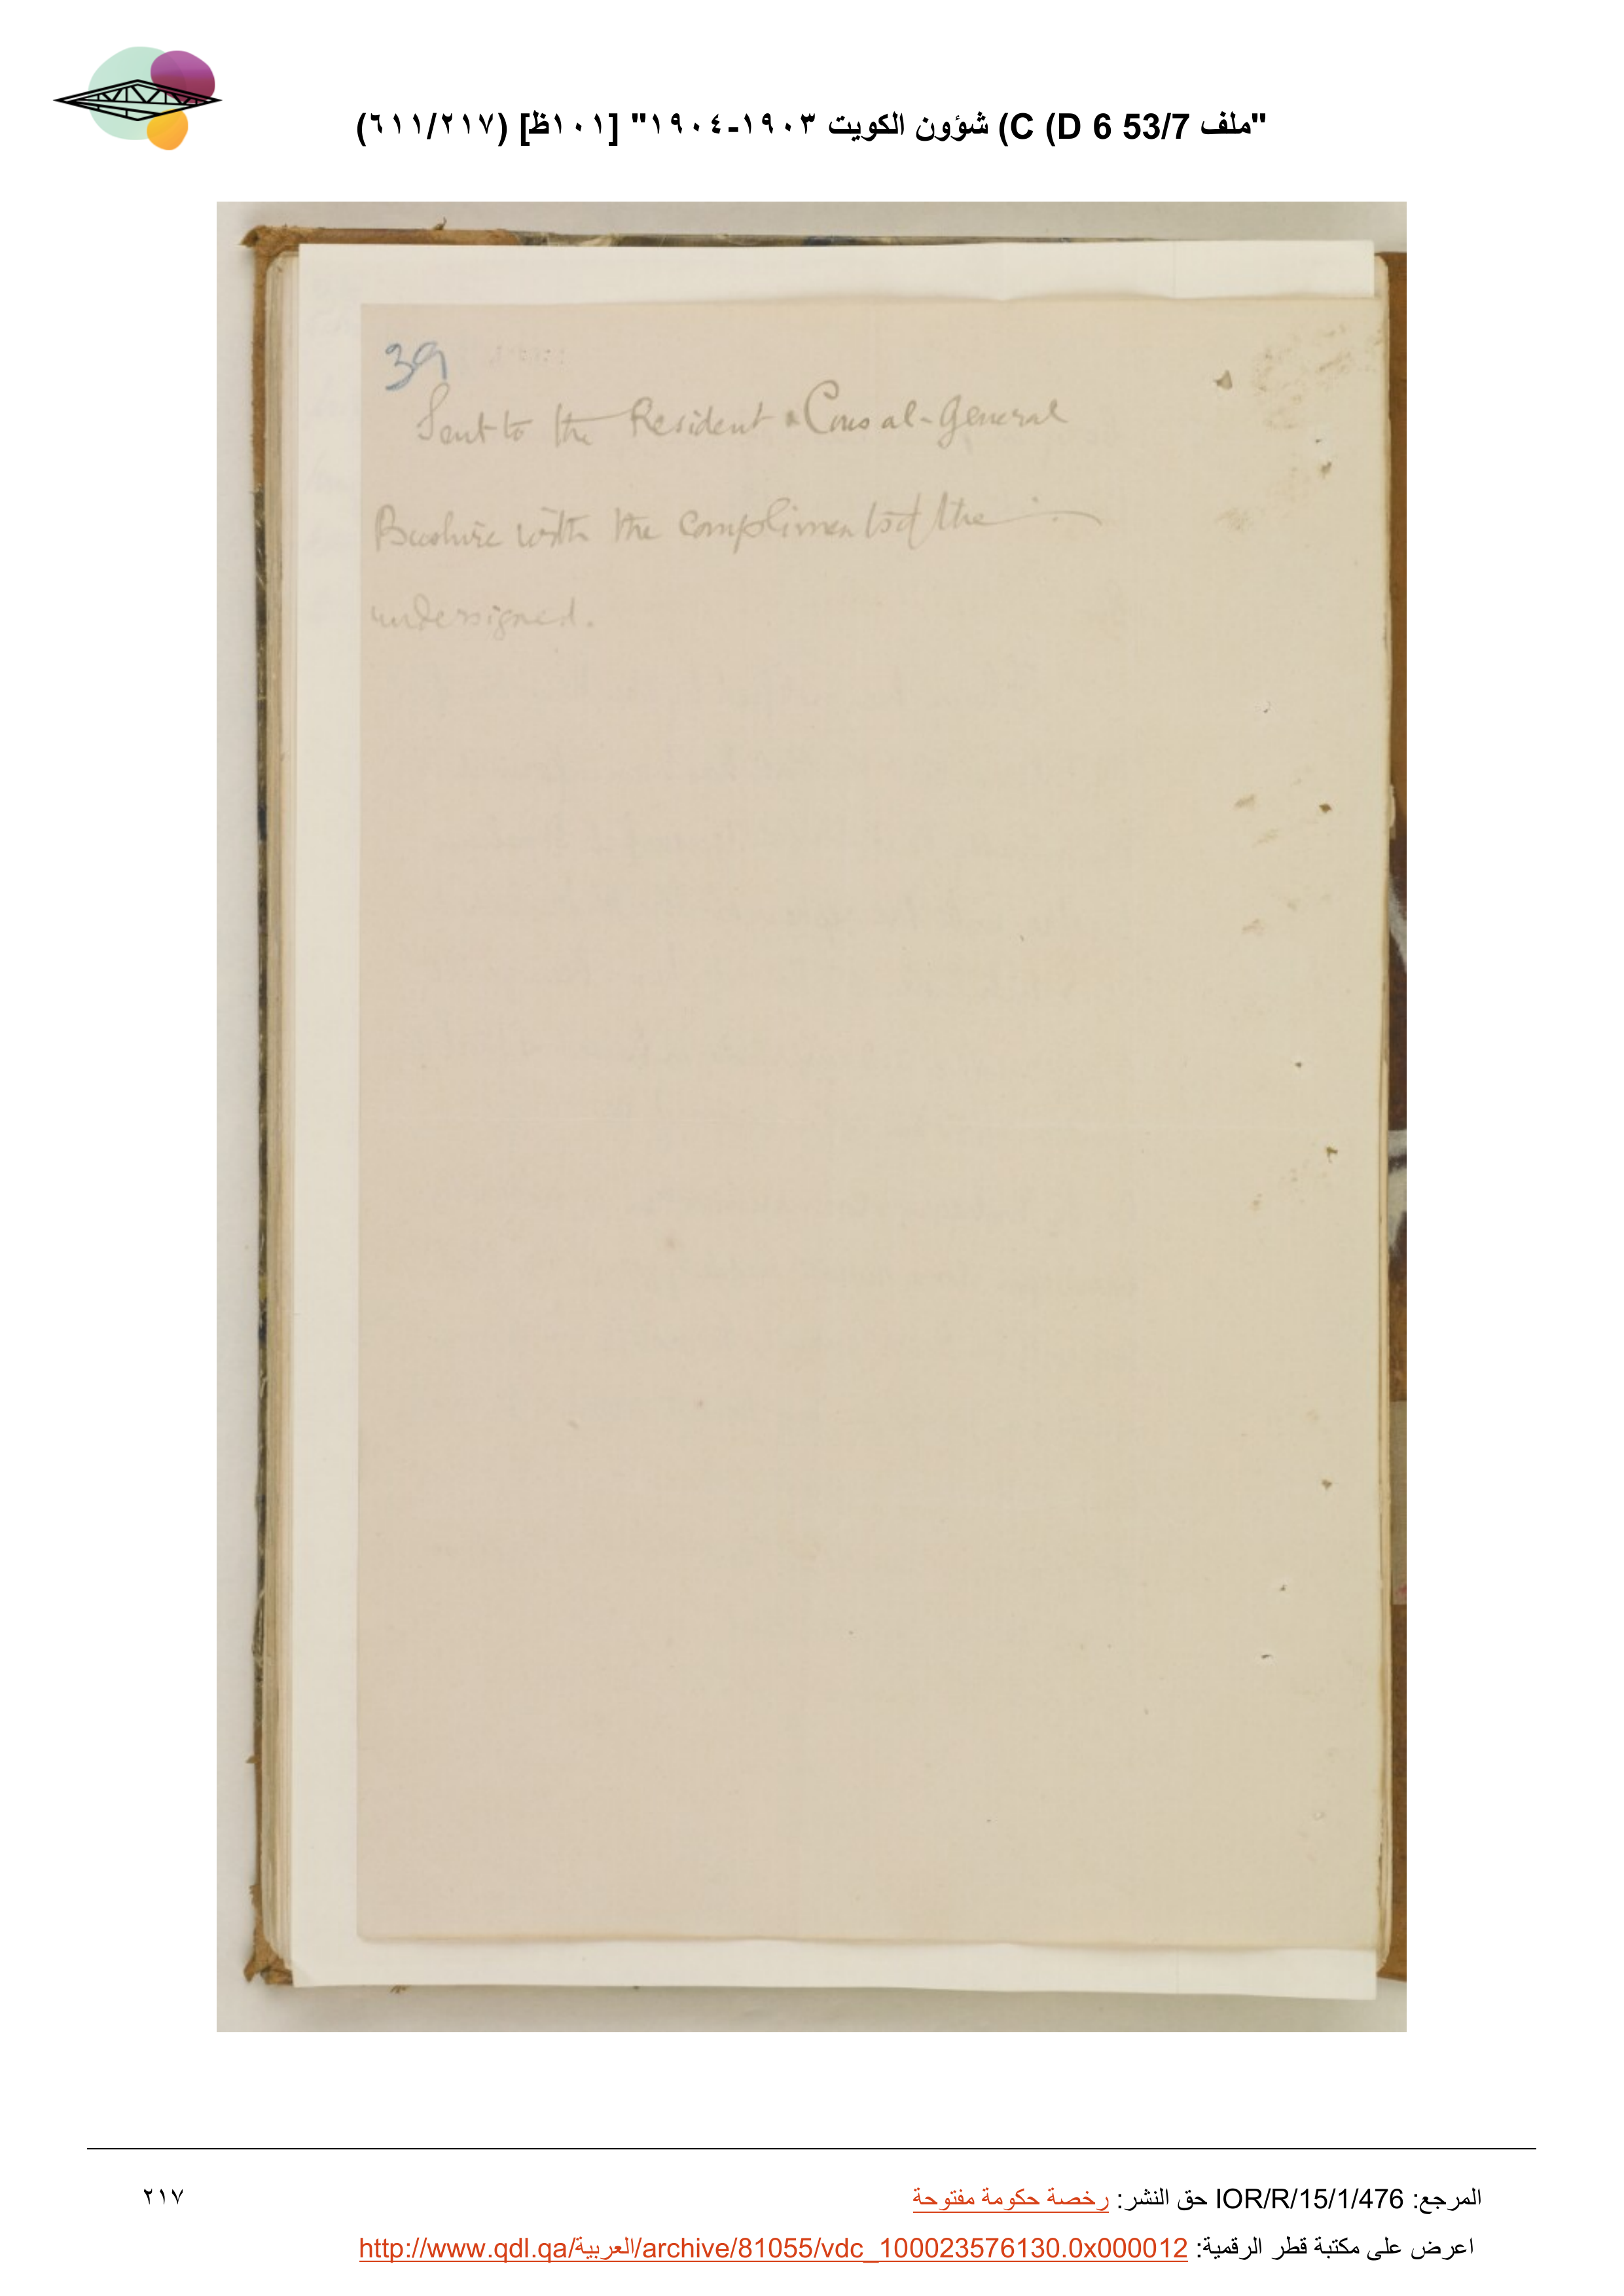 "ملف 53/7 D 6) C) شؤون الكويت ١٩٠٣-١٩٠٤" [١٠١ظ] (٦١١/٢١٧)
39
Sent to the Resident & Consul-General
Bushire with the compliments of the
undersigned.
المرجع: IOR/R/15/1/476 حق النشر: رخصة حكومة مفتوحة
٢١٧
اعرض على مكتبة قطر الرقمية: http://www.qdl.qa/العربية/archive/81055/vdc_100023576130.0x000012